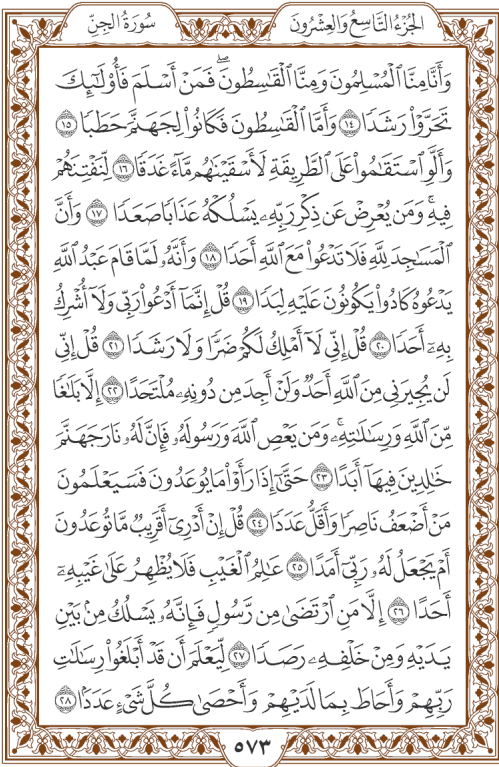 الجُزْءُ التَّاسِعُ وَالعِشْرُونَ
سُورَةُ الجِنِّ
وَأَنَّا مِنَّا ٱلْمُسْلِمُونَ وَمِنَّا ٱلْقَٰسِطُونَۖ فَمَنْ أَسْلَمَ فَأُو۟لَٰٓئِكَ
تَحَرَّوْا۟ رَشَدٗا ١٤ وَأَمَّا ٱلْقَٰسِطُونَ فَكَانُوا۟ لِجَهَنَّمَ حَطَبٗا ١٥
وَأَلَّوِ ٱسْتَقَٰمُوا۟ عَلَى ٱلطَّرِيقَةِ لَأَسْقَيْنَٰهُم مَّآءً غَدَقٗا ١٦ لِّنَفْتِنَهُمْ
فِيهِۚ وَمَن يُعْرِضْ عَن ذِكْرِ رَبِّهِۦ يَسْلُكْهُ عَذَابٗا صَعَدٗا ١٧ وَأَنَّ
ٱلْمَسَٰجِدَ لِلَّهِ فَلَا تَدْعُوا۟ مَعَ ٱللَّهِ أَحَدٗا ١٨ وَأَنَّهُۥ لَمَّا قَامَ عَبْدُ ٱللَّهِ
يَدْعُوهُ كَادُوا۟ يَكُونُونَ عَلَيْهِ لِبَدٗا ١٩ قُلْ إِنَّمَآ أَدْعُوا۟ رَبِّي وَلَآ أُشْرِكُ
بِهِۦٓ أَحَدٗا ٢٠ قُلْ إِنِّي لَآ أَمْلِكُ لَكُمْ ضَرّٗا وَلَا رَشَدٗا ٢١ قُلْ إِنِّي
لَن يُجِيرَنِي مِنَ ٱللَّهِ أَحَدٞ وَلَنْ أَجِدَ مِن دُونِهِۦ مُلْتَحَدًا ٢٢ إِلَّا بَلَٰغٗا
مِّنَ ٱللَّهِ وَرِسَٰلَٰتِهِۦۚ وَمَن يَعْصِ ٱللَّهَ وَرَسُولَهُۥ فَإِنَّ لَهُۥ نَارَ جَهَنَّمَ
خَٰلِدِينَ فِيهَآ أَبَدًا ٢٣ حَتَّىٰٓ إِذَا رَأَوْا۟ مَا يُوعَدُونَ فَسَيَعْلَمُونَ
مَنْ أَضْعَفُ نَاصِرٗا وَأَقَلُّ عَدَدٗا ٢٤ قُلْ إِنْ أَدْرِيٓ أَقَرِيبٞ مَّا تُوعَدُونَ
أَمْ يَجْعَلُ لَهُۥ رَبِّيٓ أَمَدًا ٢٥ عَٰلِمُ ٱلْغَيْبِ فَلَا يُظْهِرُ عَلَىٰ غَيْبِهِۦٓ
أَحَدًا ٢٦ إِلَّا مَنِ ٱرْتَضَىٰ مِن رَّسُولٖ فَإِنَّهُۥ يَسْلُكُ مِنۢ بَيْنِ
يَدَيْهِ وَمِنْ خَلْفِهِۦ رَصَدٗا ٢٧ لِّيَعْلَمَ أَن قَدْ أَبْلَغُوا۟ رِسَٰلَٰتِ
رَبِّهِمْ وَأَحَاطَ بِمَا لَدَيْهِمْ وَأَحْصَىٰ كُلَّ شَيْءٍ عَدَدَۢا ٢٨
٥٧٣